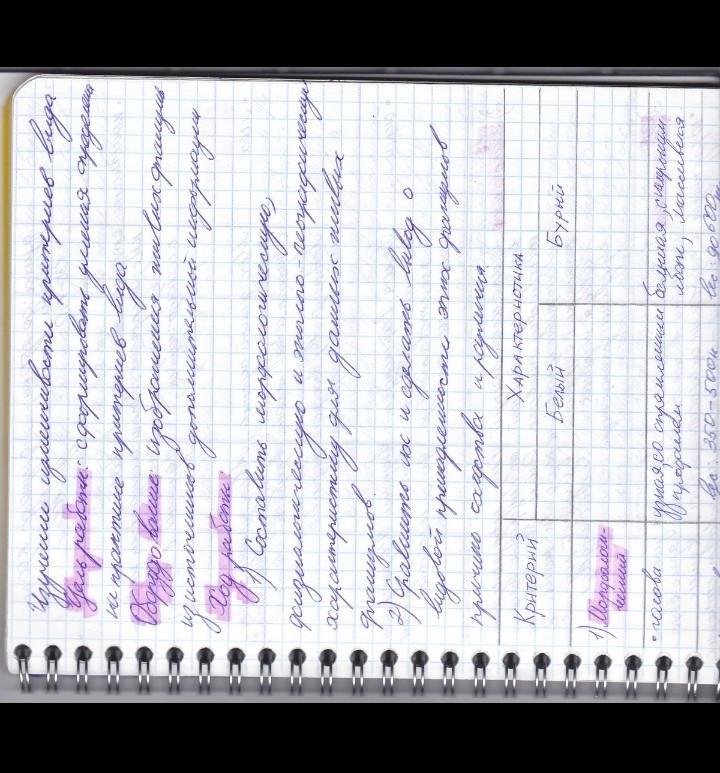 Изучение изменчивости критериев вида
Цель работы: сформировать умения определ
на практике критерии вида
Оборудование: изображения живых организ
из источников дополнительной информации
Ход работы:
1) Составить морфологическую,
физиологическую и эколого-географическую
характеристику для данных живых
организмов.
2) Сравнить их и сделать вывод о
видовой принадлежности этих организмов
причины сходства и различия
Критерий Характеристика
Белый Бурый
1) Морфологи-
ческий
• голова узкая, со спрямленным большая, с широким
профилем лбом, массивная
вес: 350-500кг вес до 600